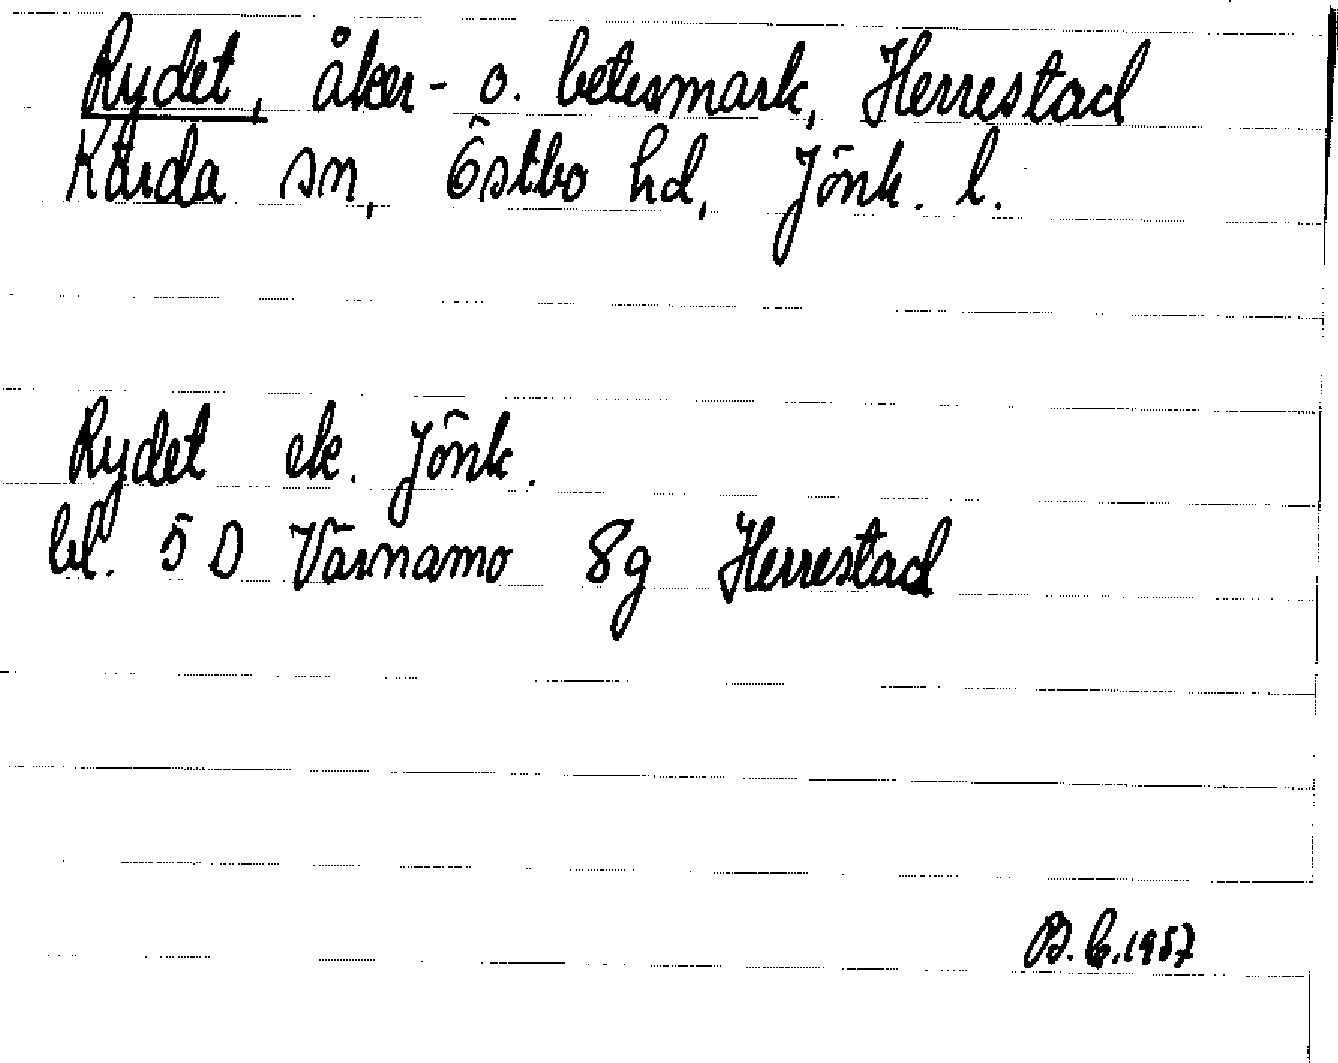 Rydet, åker- o. betesmark, Herrestad
Kärda sn, Östbo hd, Jönk. l.
Rydet ek. Jönk.
bl. 5 D Värnamo 8g Herrestad
1957